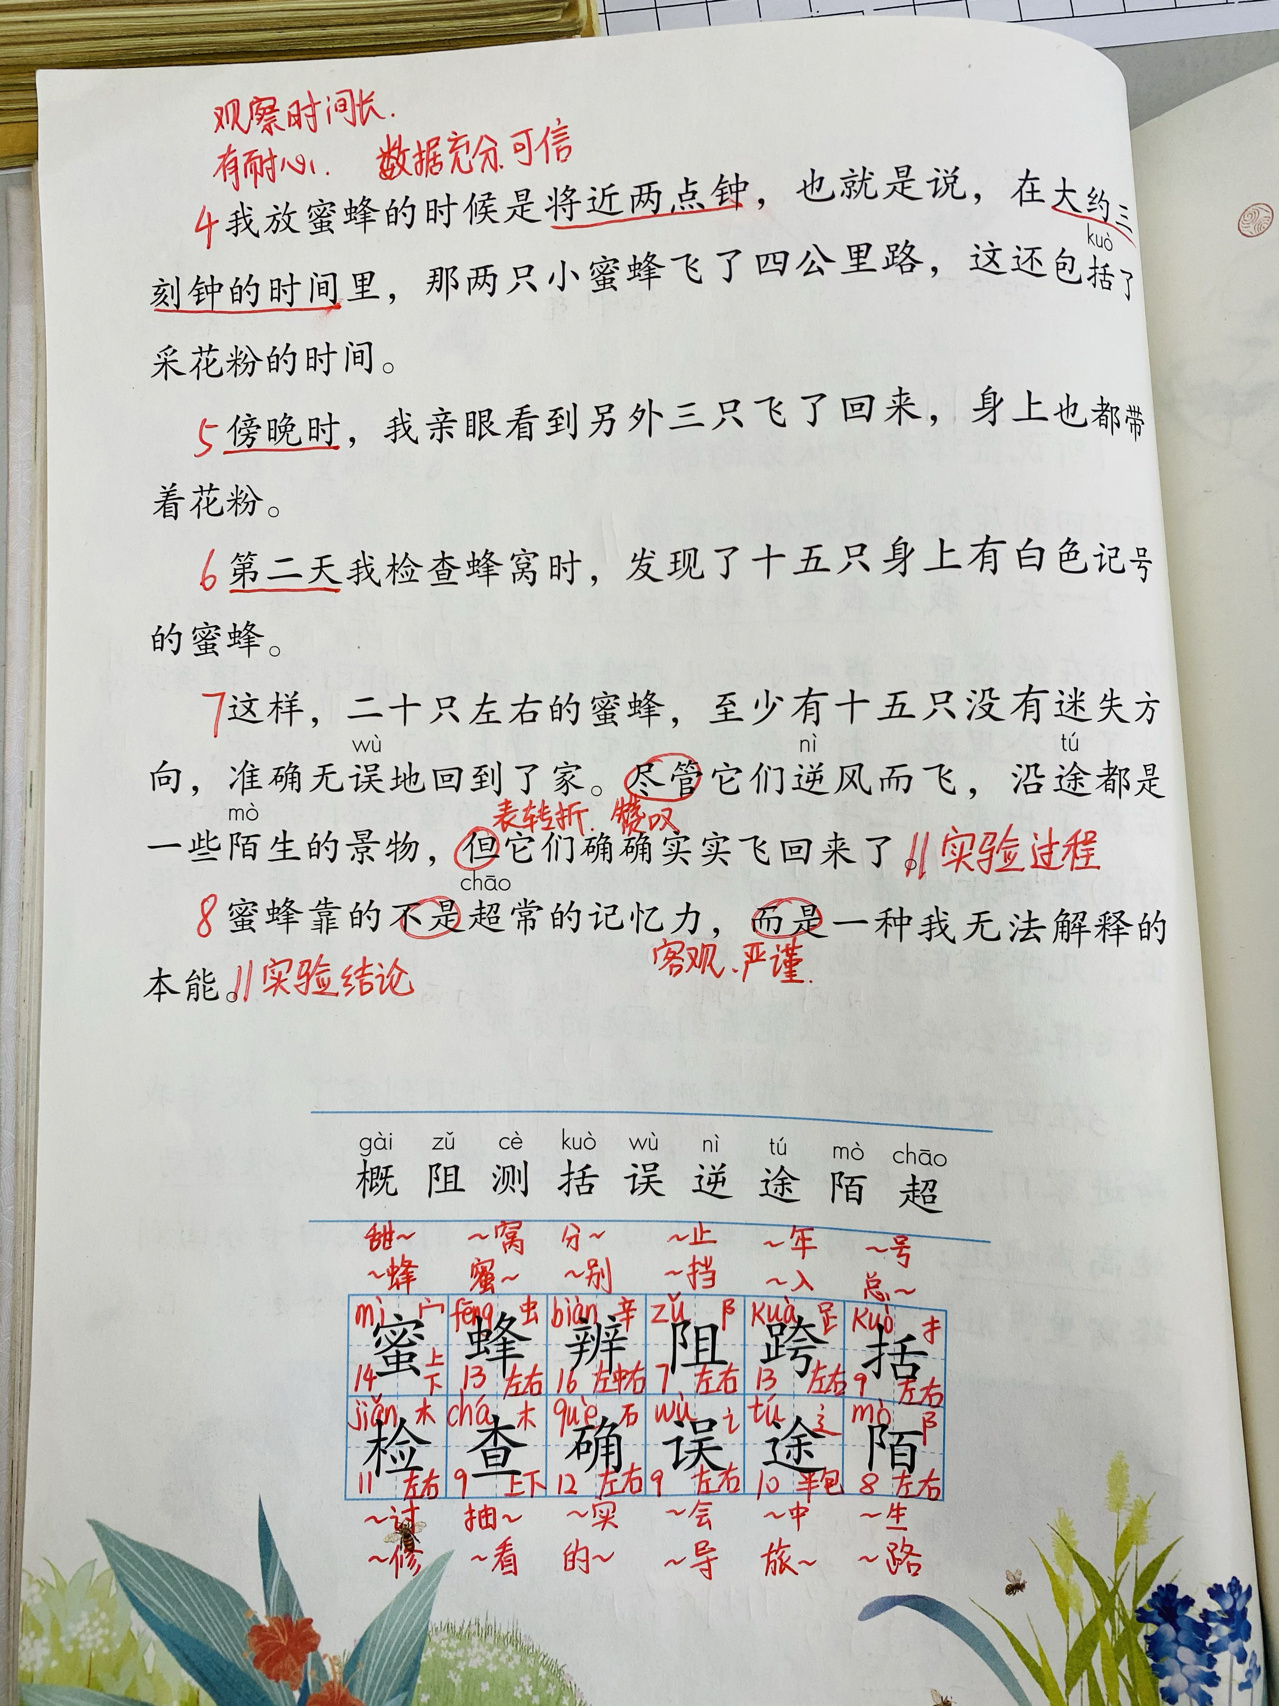 观察时间长.
有耐心. 数据充分.可信
4我放蜜蜂的时候是将近两点钟，也就是说，在大约三
kuò
刻钟的时间里，那两只小蜜蜂飞了四公里路，这还包括了
采花粉的时间。
5傍晚时，我亲眼看到另外三只飞了回来，身上也都带
着花粉。
6第二天我检查蜂窝时，发现了十五只身上有白色记号
的蜜蜂。
7这样，二十只左右的蜜蜂，至少有十五只没有迷失方
wù nì tú
向，准确无误地回到了家。尽管它们逆风而飞，沿途都是
mò 表转折.
一些陌生的景物，但它们确确实实飞回来了。//实验过程
chāo
8蜜蜂靠的不是超常的记忆力，而是一种我无法解释的
客观、严谨.
本能。//实验结论
gài zǔ cè kuò wù nì tú mò chāo
概 阻 测 括 误 逆 途 陌 超
甜~ ~窝 分~ ~止 ~年 ~号
~蜂 蜜~ ~别 ~挡 ~入 总~
mì 宀 fēng 虫 biàn 辛 zǔ 阝 kuà 足 kuò 扌
蜜 蜂 辨 阻 跨 括
14 上下 13 左右 16 左中右 7 左右 13 左右 9 左右
jiǎn 木 chá 木 què 石 wù 讠 tú 辶 mò 阝
检 查 确 误 途 陌
11 左右 9 上下 12 左右 9 左右 10 半包 8 左右
~讨 抽~ ~实 ~会 ~中 ~生
~修 ~看 的~ ~导 旅~ ~路